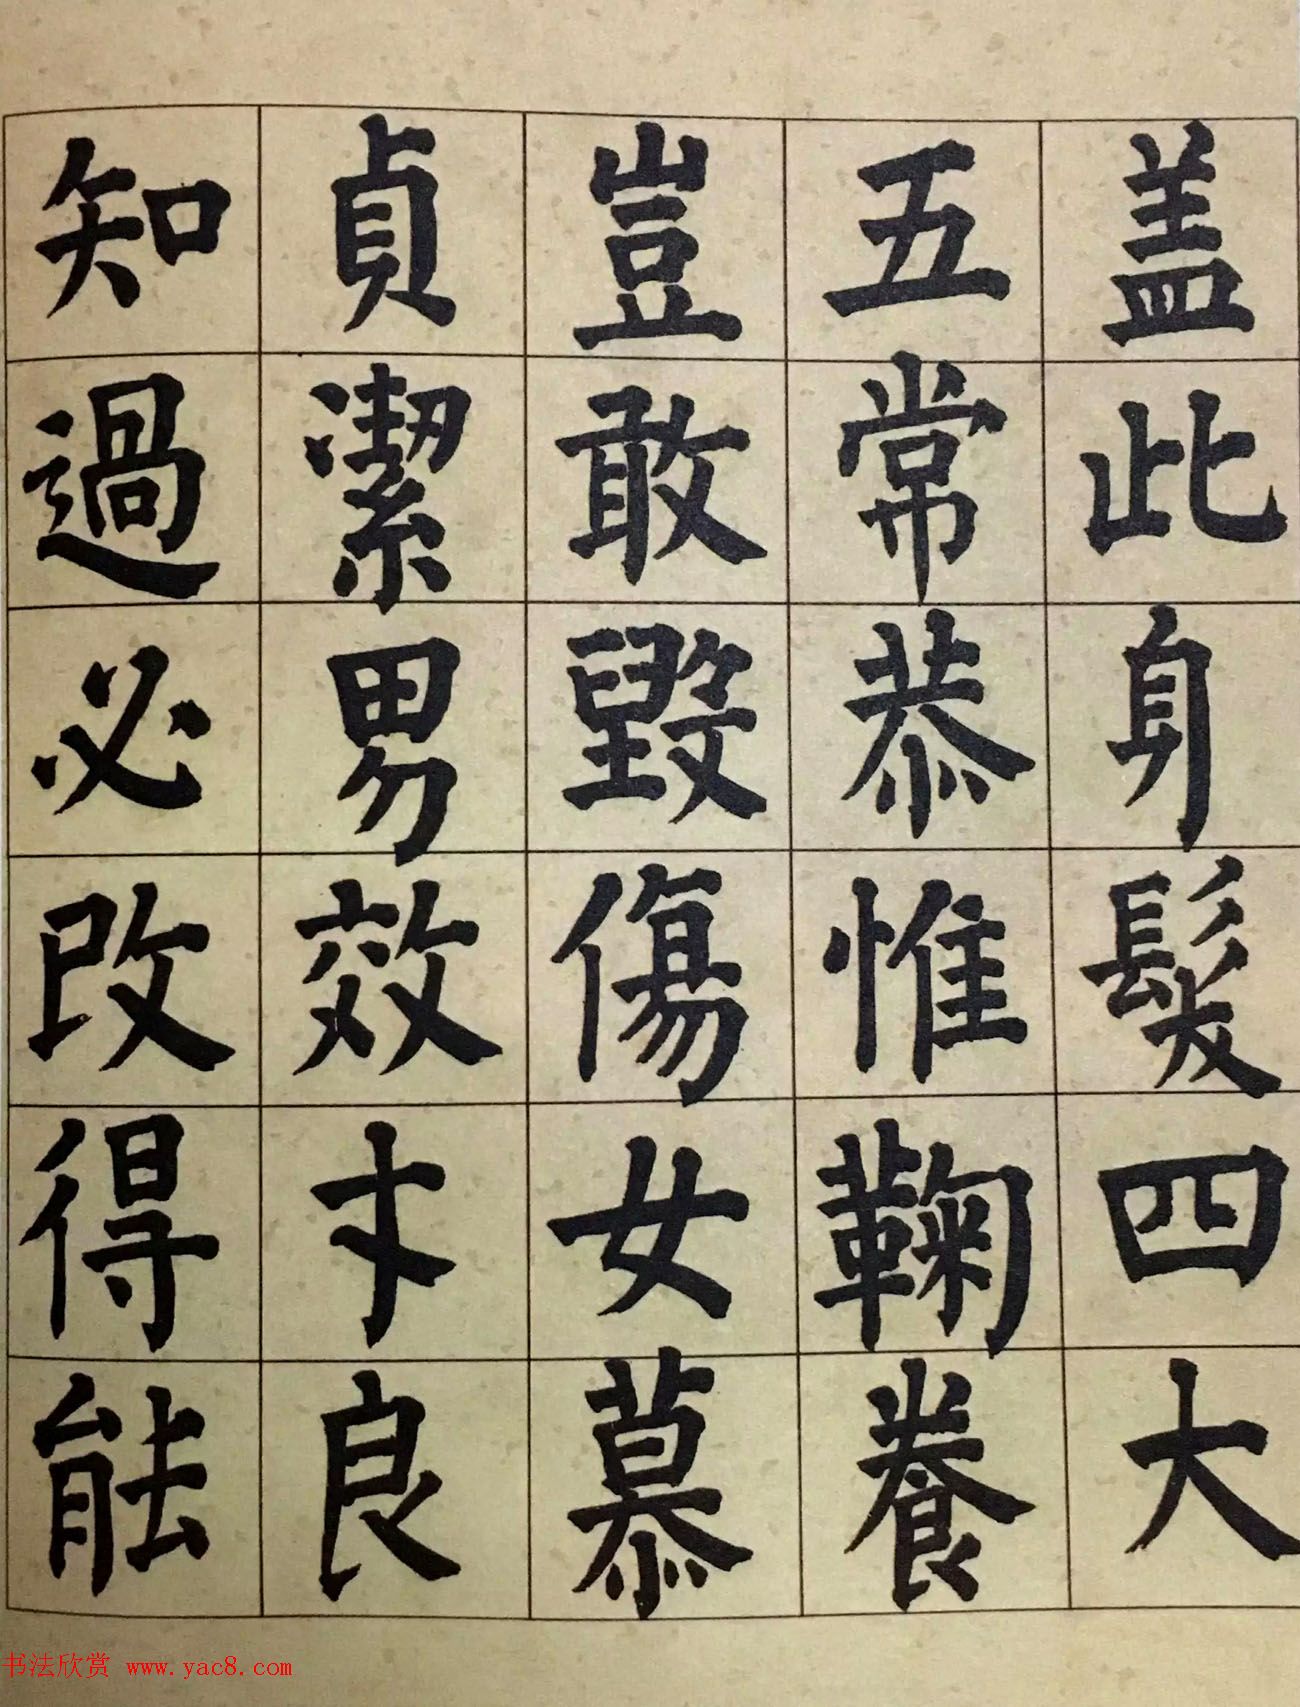 盖此身髮四大
五常恭惟鞠養
豈敢毀傷女慕
貞潔男效才良
知過必改得能
书法欣赏 www.yac8.com